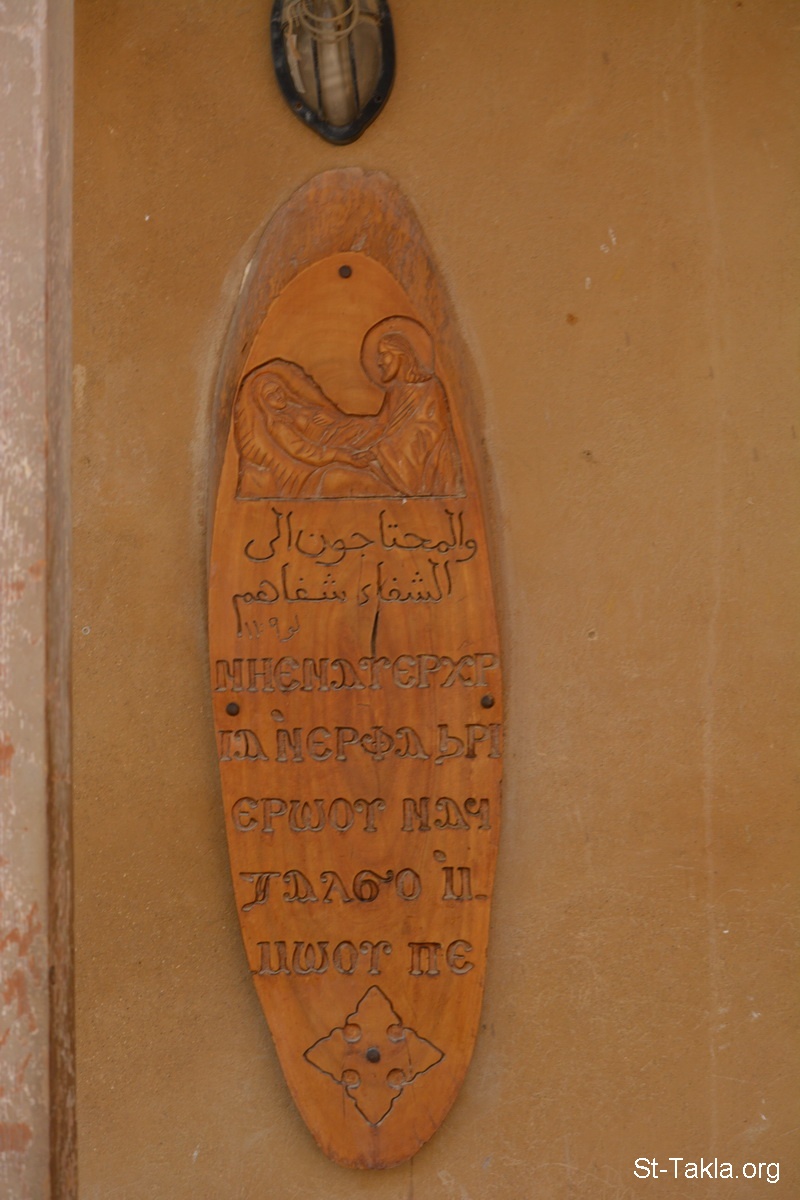 والمحتاجون الى
الشفاء شفاهم
لو ٩ :١١
ⲚⲎⲈⲚⲀⲨⲈⲢⲬⲢ
ⲓⲀ ⲚⲈⲢⲪⲀϦⲢⲒ
ⲈⲢⲰⲞⲨ ⲚⲀϤ
ⲦⲀⲖϬⲞ Ⲙ̀-
ⲘⲰⲞⲨ ⲠⲈ
St-Takla.org